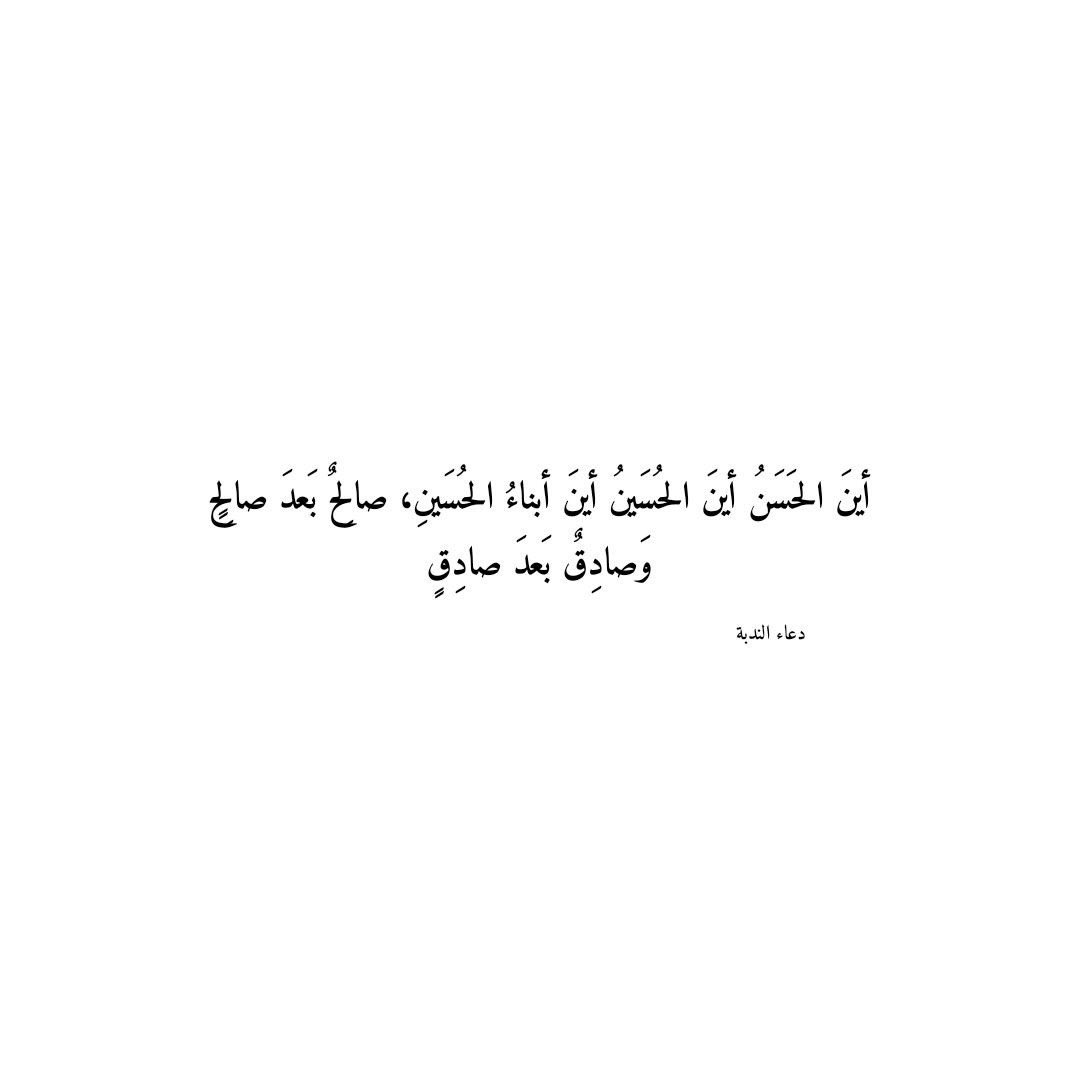 أينَ الحَسَنُ أينَ الحُسَينُ أينَ أبناءُ الحُسَينِ، صالِحٌ بَعدَ صالِحٍ
وَصادِقٌ بَعدَ صادِقٍ
دعاء الندبة